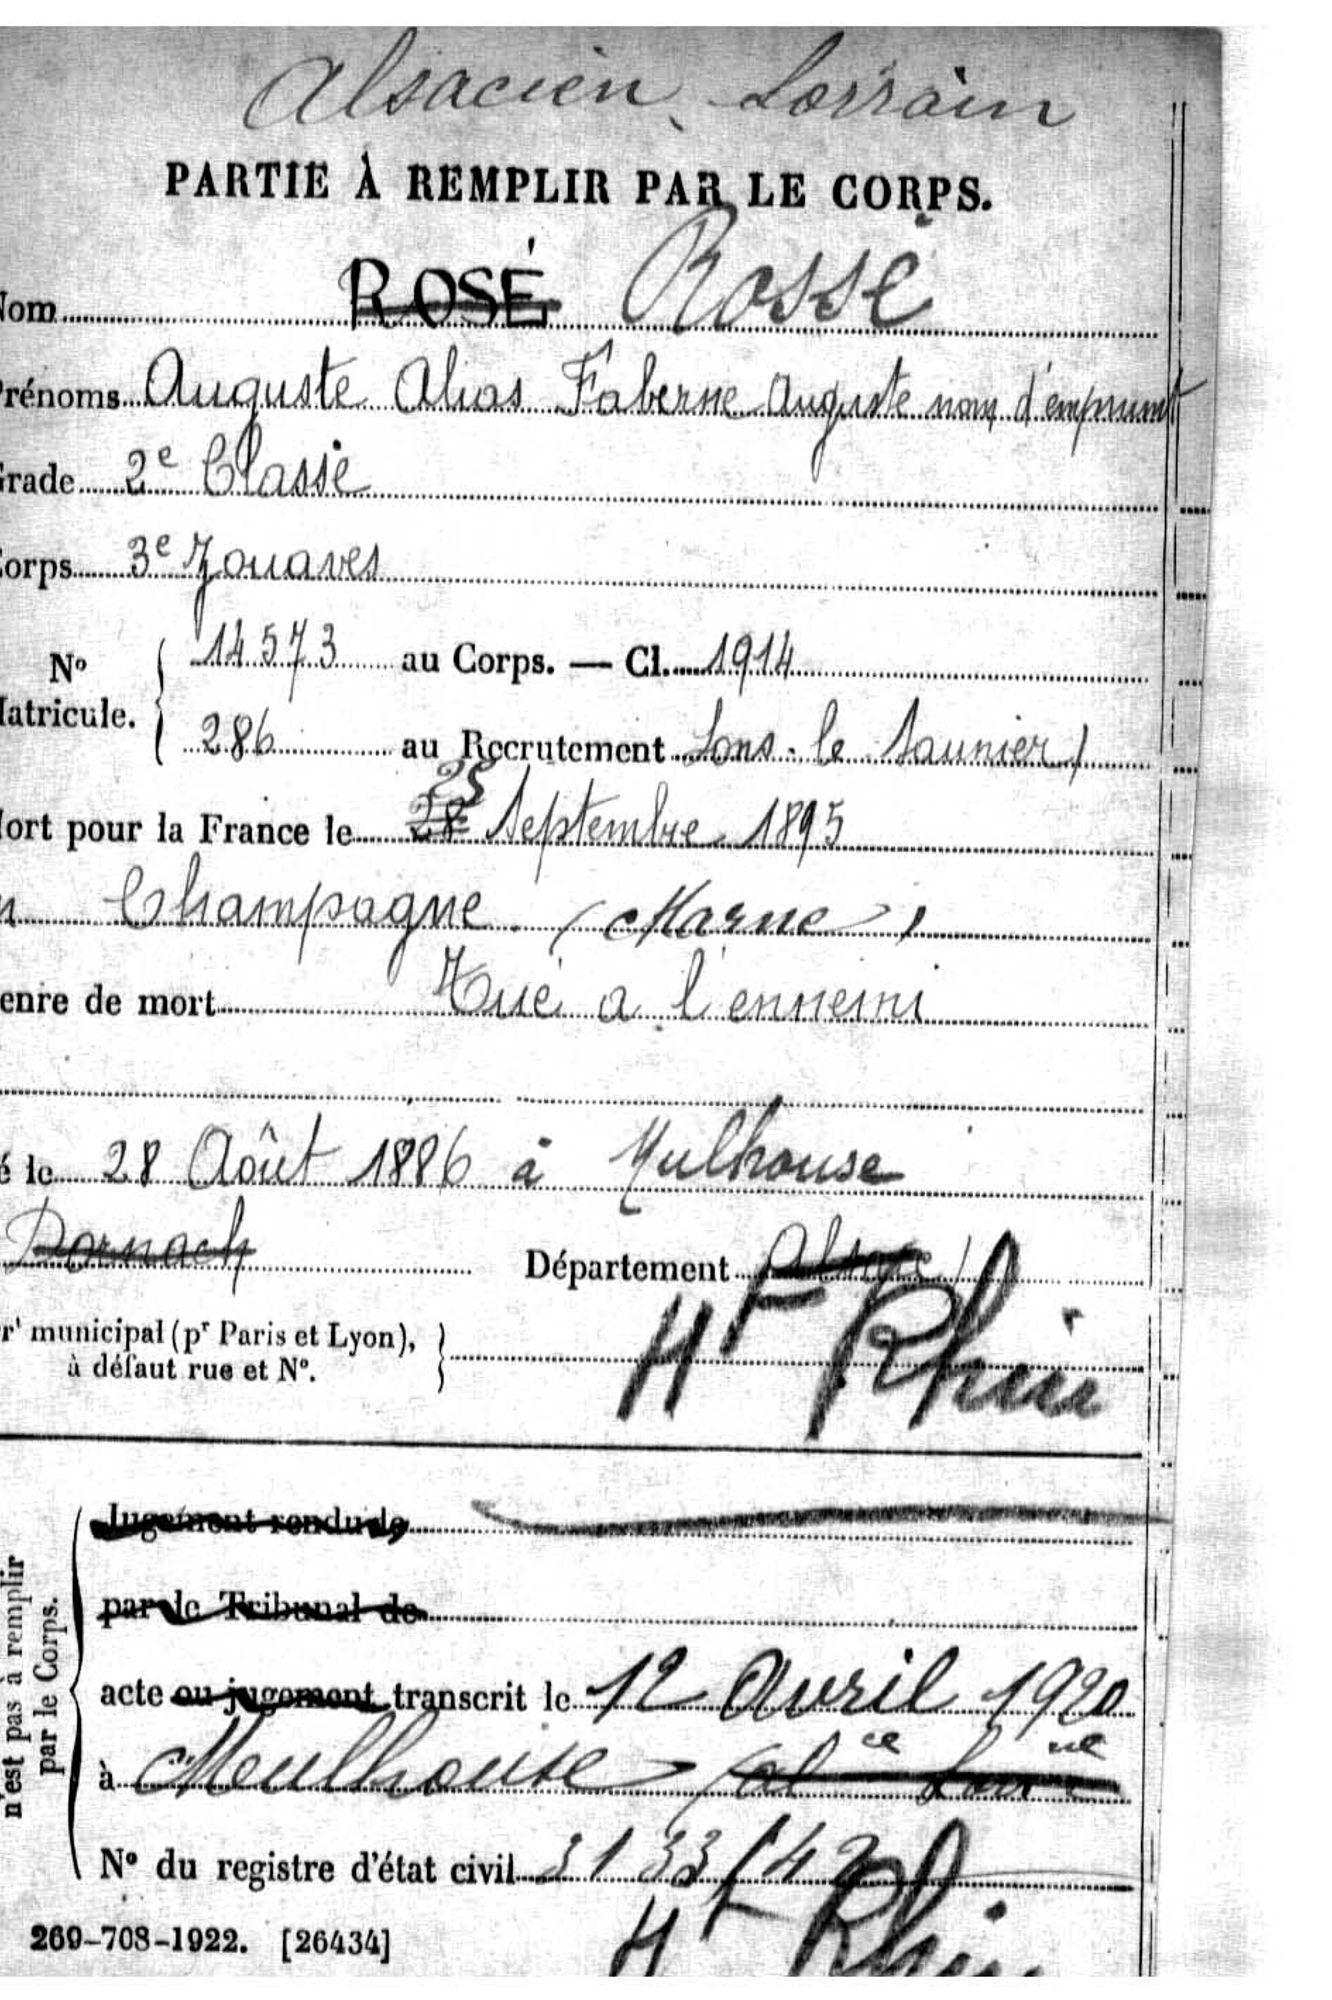 Alsacien Lorrain
PARTIE À REMPLIR PAR LE CORPS.
Nom ROSÉ Rossé
Prénoms Auguste Alias Faberne Auguste nom d'emprunt
Grade 2e Classe
Corps 3e Zouaves
No Matricule. 14573 au Corps. — Cl. 1914
286 au Recrutement Lons-le Saunier
Mort pour la France le 28 25 Septembre 1895
Champagne (Marne)
enre de mort Tué a l'ennemi
é le 28 Août 1886 à Mulhouse
Dornach Département Alsace
Ht Rhin
rt municipal (pr Paris et Lyon),
à défaut rue et No.
n'est pas à remplir
par le Corps.
Jugement rendu le
par le Tribunal de
acte ou jugement transcrit le 12 Avril 1920
à Meulhouse (alce Lorne
No du registre d'état civil 3133/42
Ht Rhin
269-708-1922. [26434]